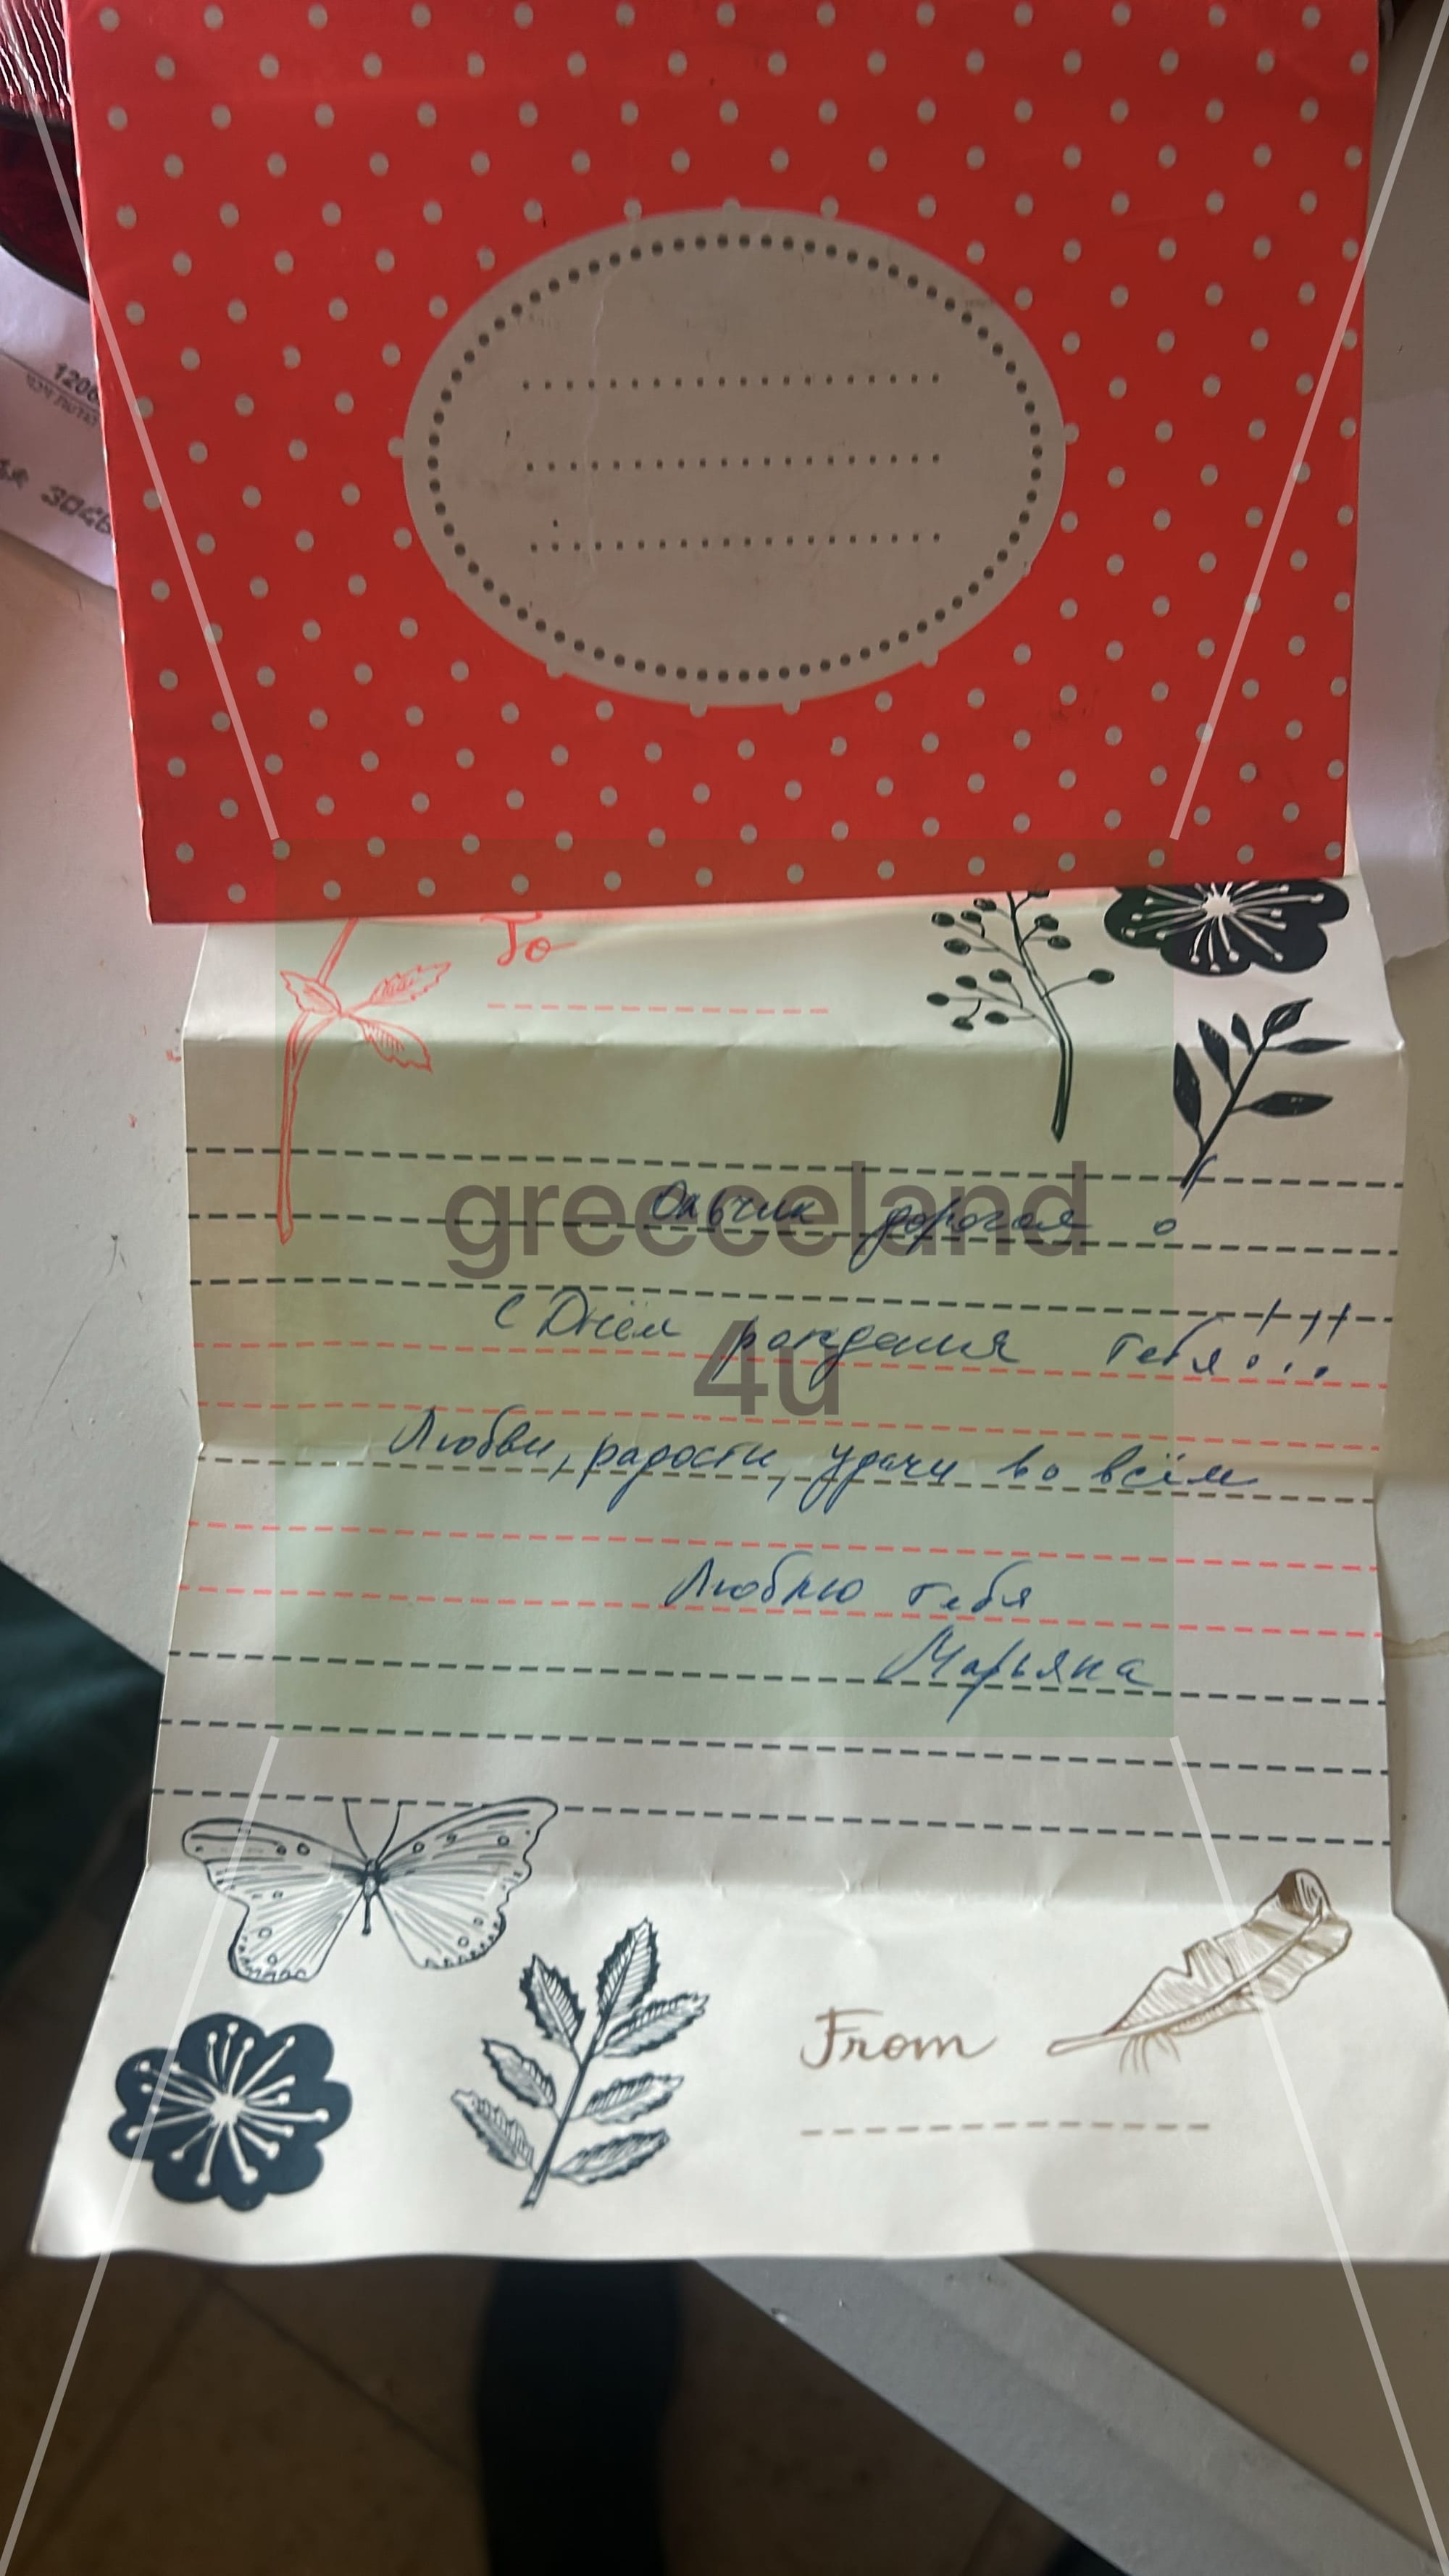 1206
To
Ольчик дорогая !
С Днём рождения тебя!!!
Любви, радости, удачи во всём
Люблю тебя
Марьяна
From
greeceland
4u